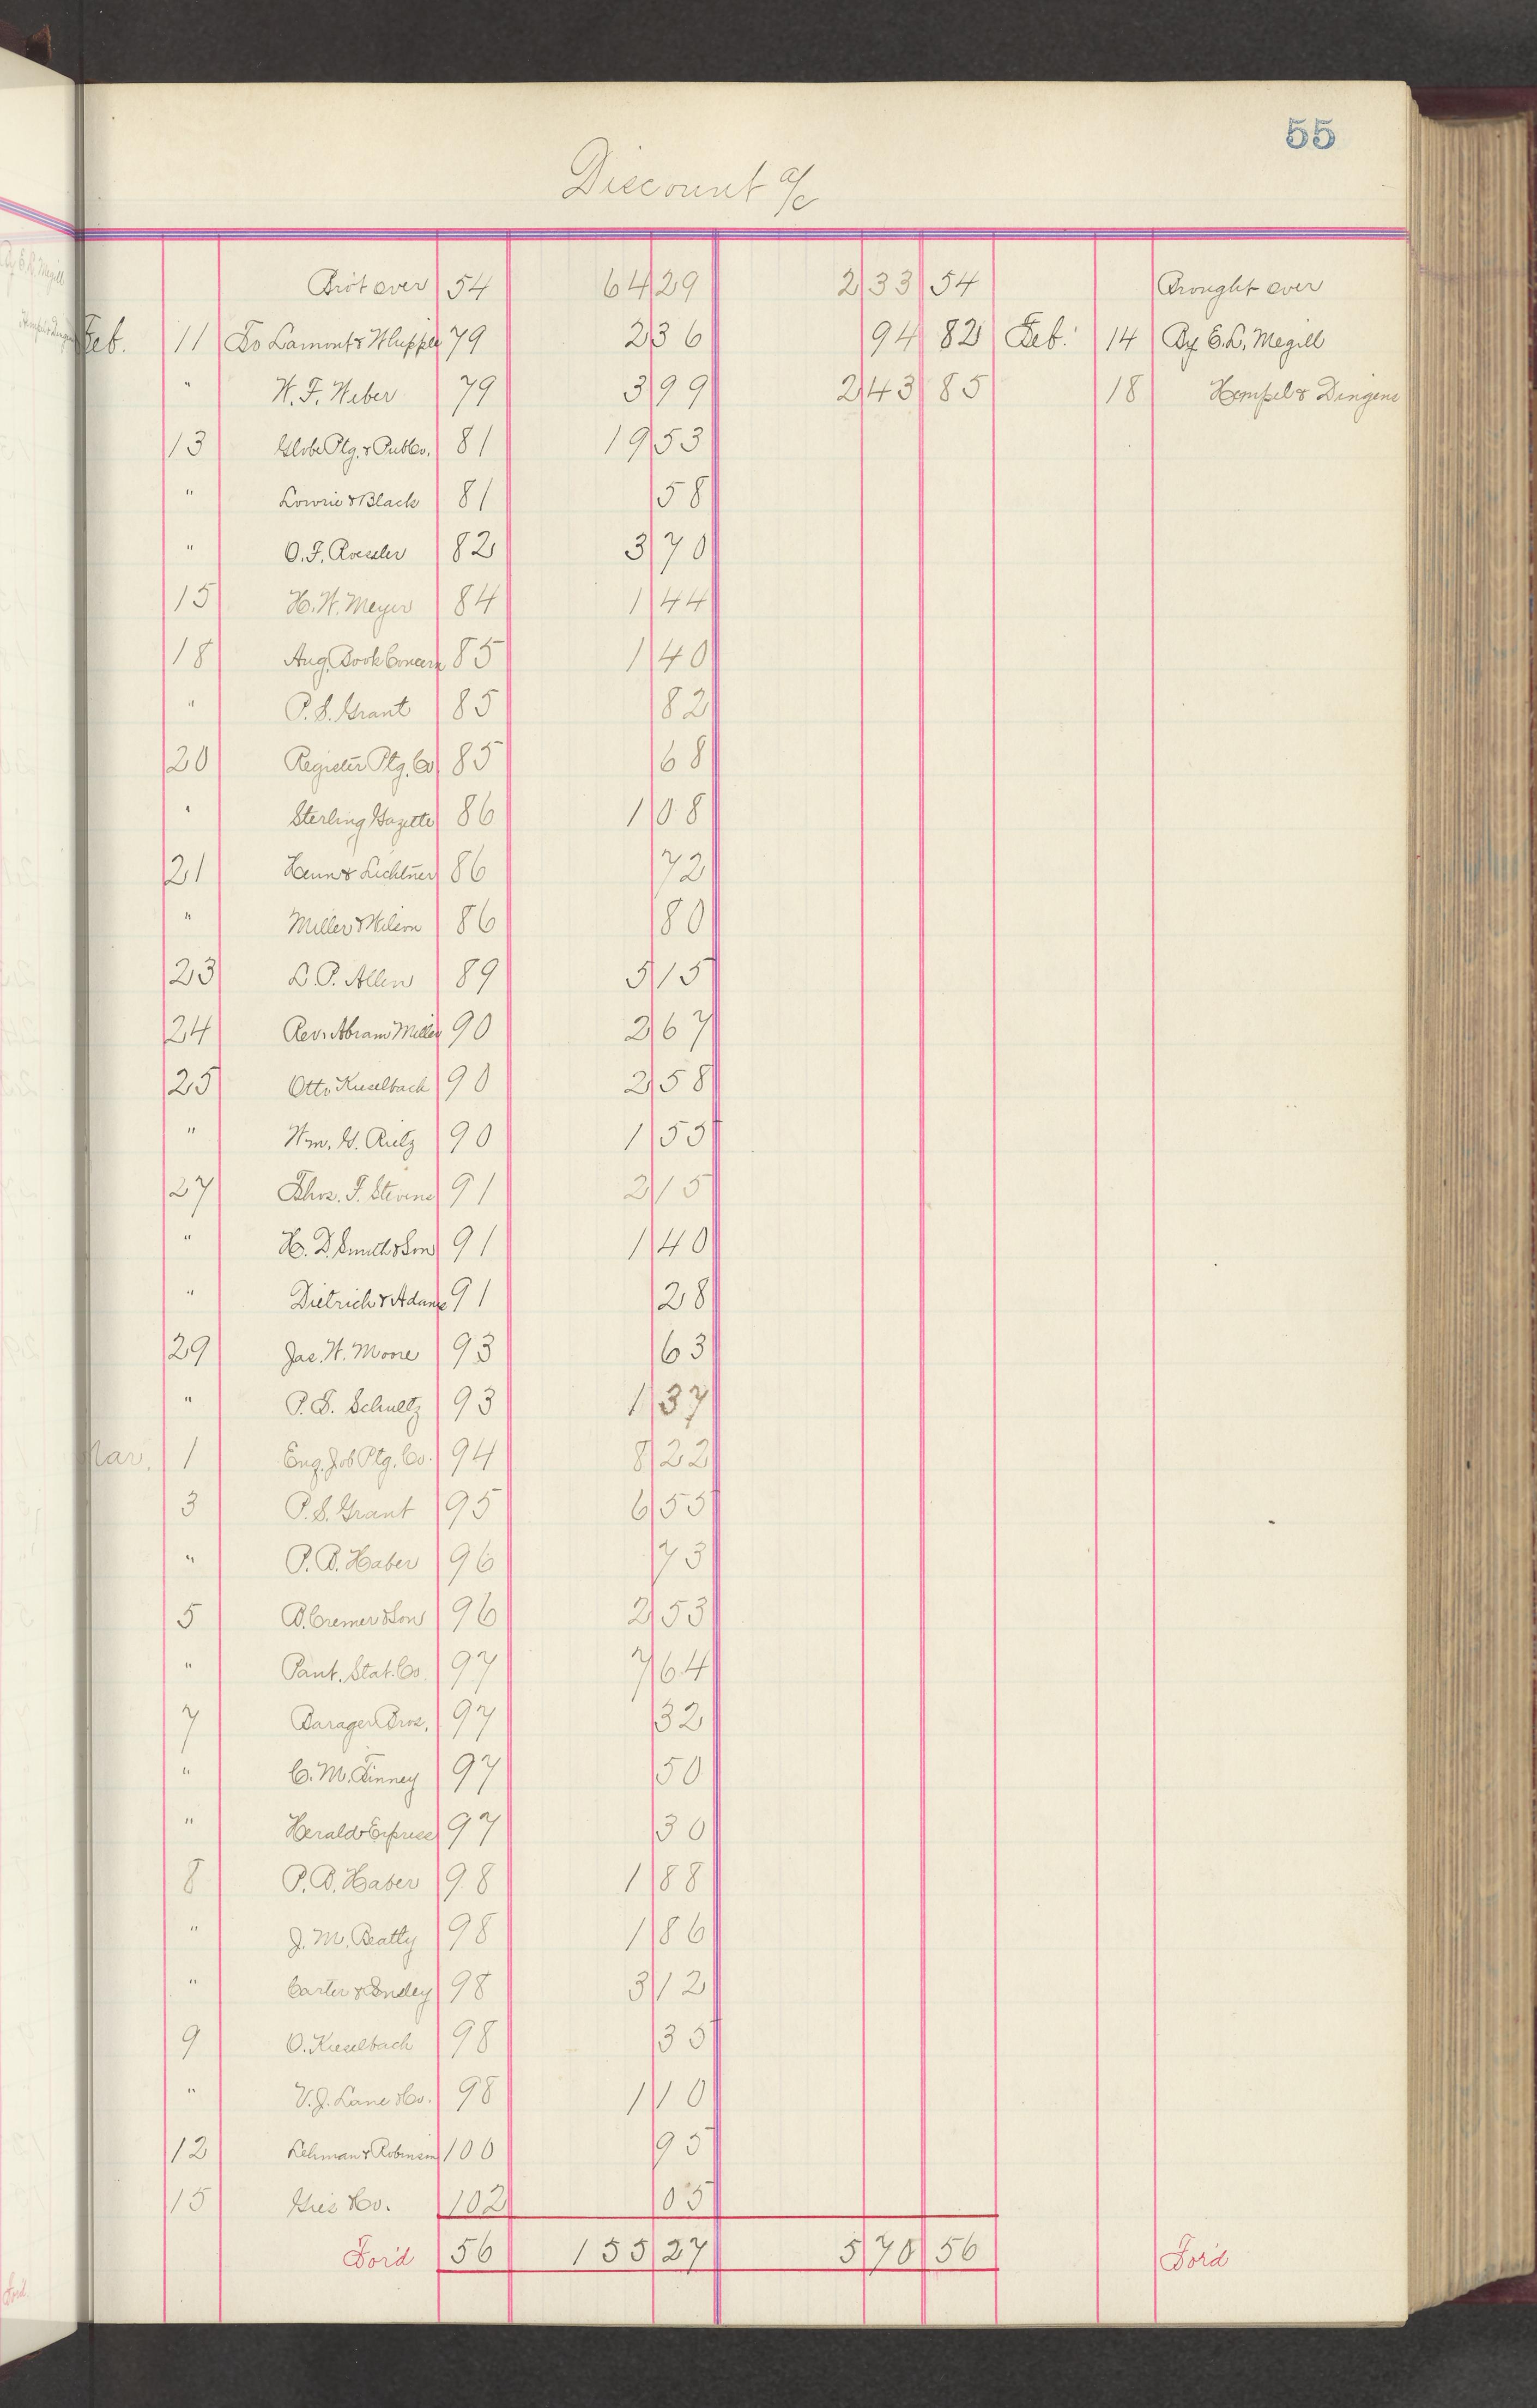 55
Discount a/c
Bro't over 54 64 29 233 54 Brought over
Feb. 11 To Lamont & Whipple 79 2 36 94 82 Feb. 14 By E. L. Megill
" W. F. Weber 79 3 99 243 85 18 Hempel & Dingens
13 Globe Ptg. & Pub Co. 81 19 53
" Lowrie & Black 81 58
" O. F. Roessler 82 3 70
15 H. W. Meyer 84 1 44
18 Aug. Book Concern 85 1 40
" P. S. Grant 85 82
20 Register Ptg. Co 85 68
" Sterling Gazette 86 1 08
21 & Lichtner 86 72
" Miller & Wilson 86 80
23 L. P. Allen 89 5 15
24 Rev. Abram Miller 90 2 67
25 Otto Kieselbach 90 2 58
" Wm. G. Rietz 90 1 55
27 Thos. F. Stevens 91 2 15
" H. D. Smith & Son 91 1 40
" Dietrich & Adams 91 28
29 Jas. W. Moore 93 63
" P. S. Schultz 93 1 37
Mar. 1 Eng. Job Ptg. Co. 94 8 22
3 P. S. Grant 95 6 55
" P. B. Haber 96 73
5 B. Cremer & Son 96 2 53
" Pant. Stat. Co. 97 7 64
7 Barager Bros. 97 32
" C. M. Finney 97 50
" Herald & Express 97 30
8 P. B. Haber 98 1 88
" J. M. Beatty 98 1 86
" Carter & 98 3 12
9 O. Kieselbach 98 35
" V. J. Lane & Co. 98 1 10
12 Lehman & Robinson 100 95
15 Gies & Co. 102 05
For'd 56 155 27 570 56 For'd